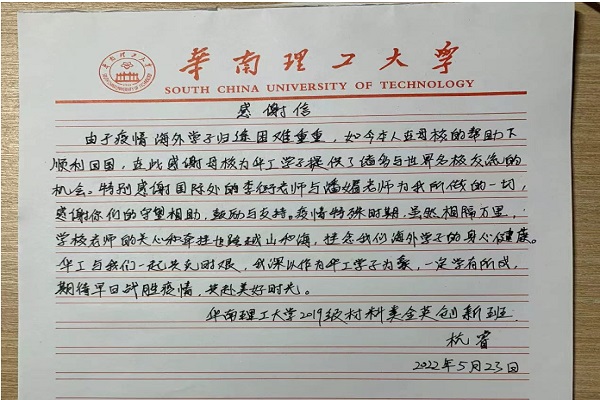 華南理工大学
SOUTH CHINA UNIVERSITY OF TECHNOLOGY
感谢信
由于疫情海外学子归途困难重重，如今本人在母校的帮助下
顺利回国，在此感谢母校为华工学子提供了诸多与世界名校交流的
机会。特别感谢国际处的李老师与潘老师为我所做的一切，
感谢你们的守望相助，鼓励与支持。疫情特殊时期，虽然相隔万里，
学校老师的关心和牵挂也跨越山和海，挂念我们海外学子的身心健康。
华工与我们一起共克时艰，我深以作为华工学子为豪，一定学有所成，
期待早日战胜疫情，共赴美好时光。
华南理工大学2019级材料类全英创新班
杭睿
2022年5月23日